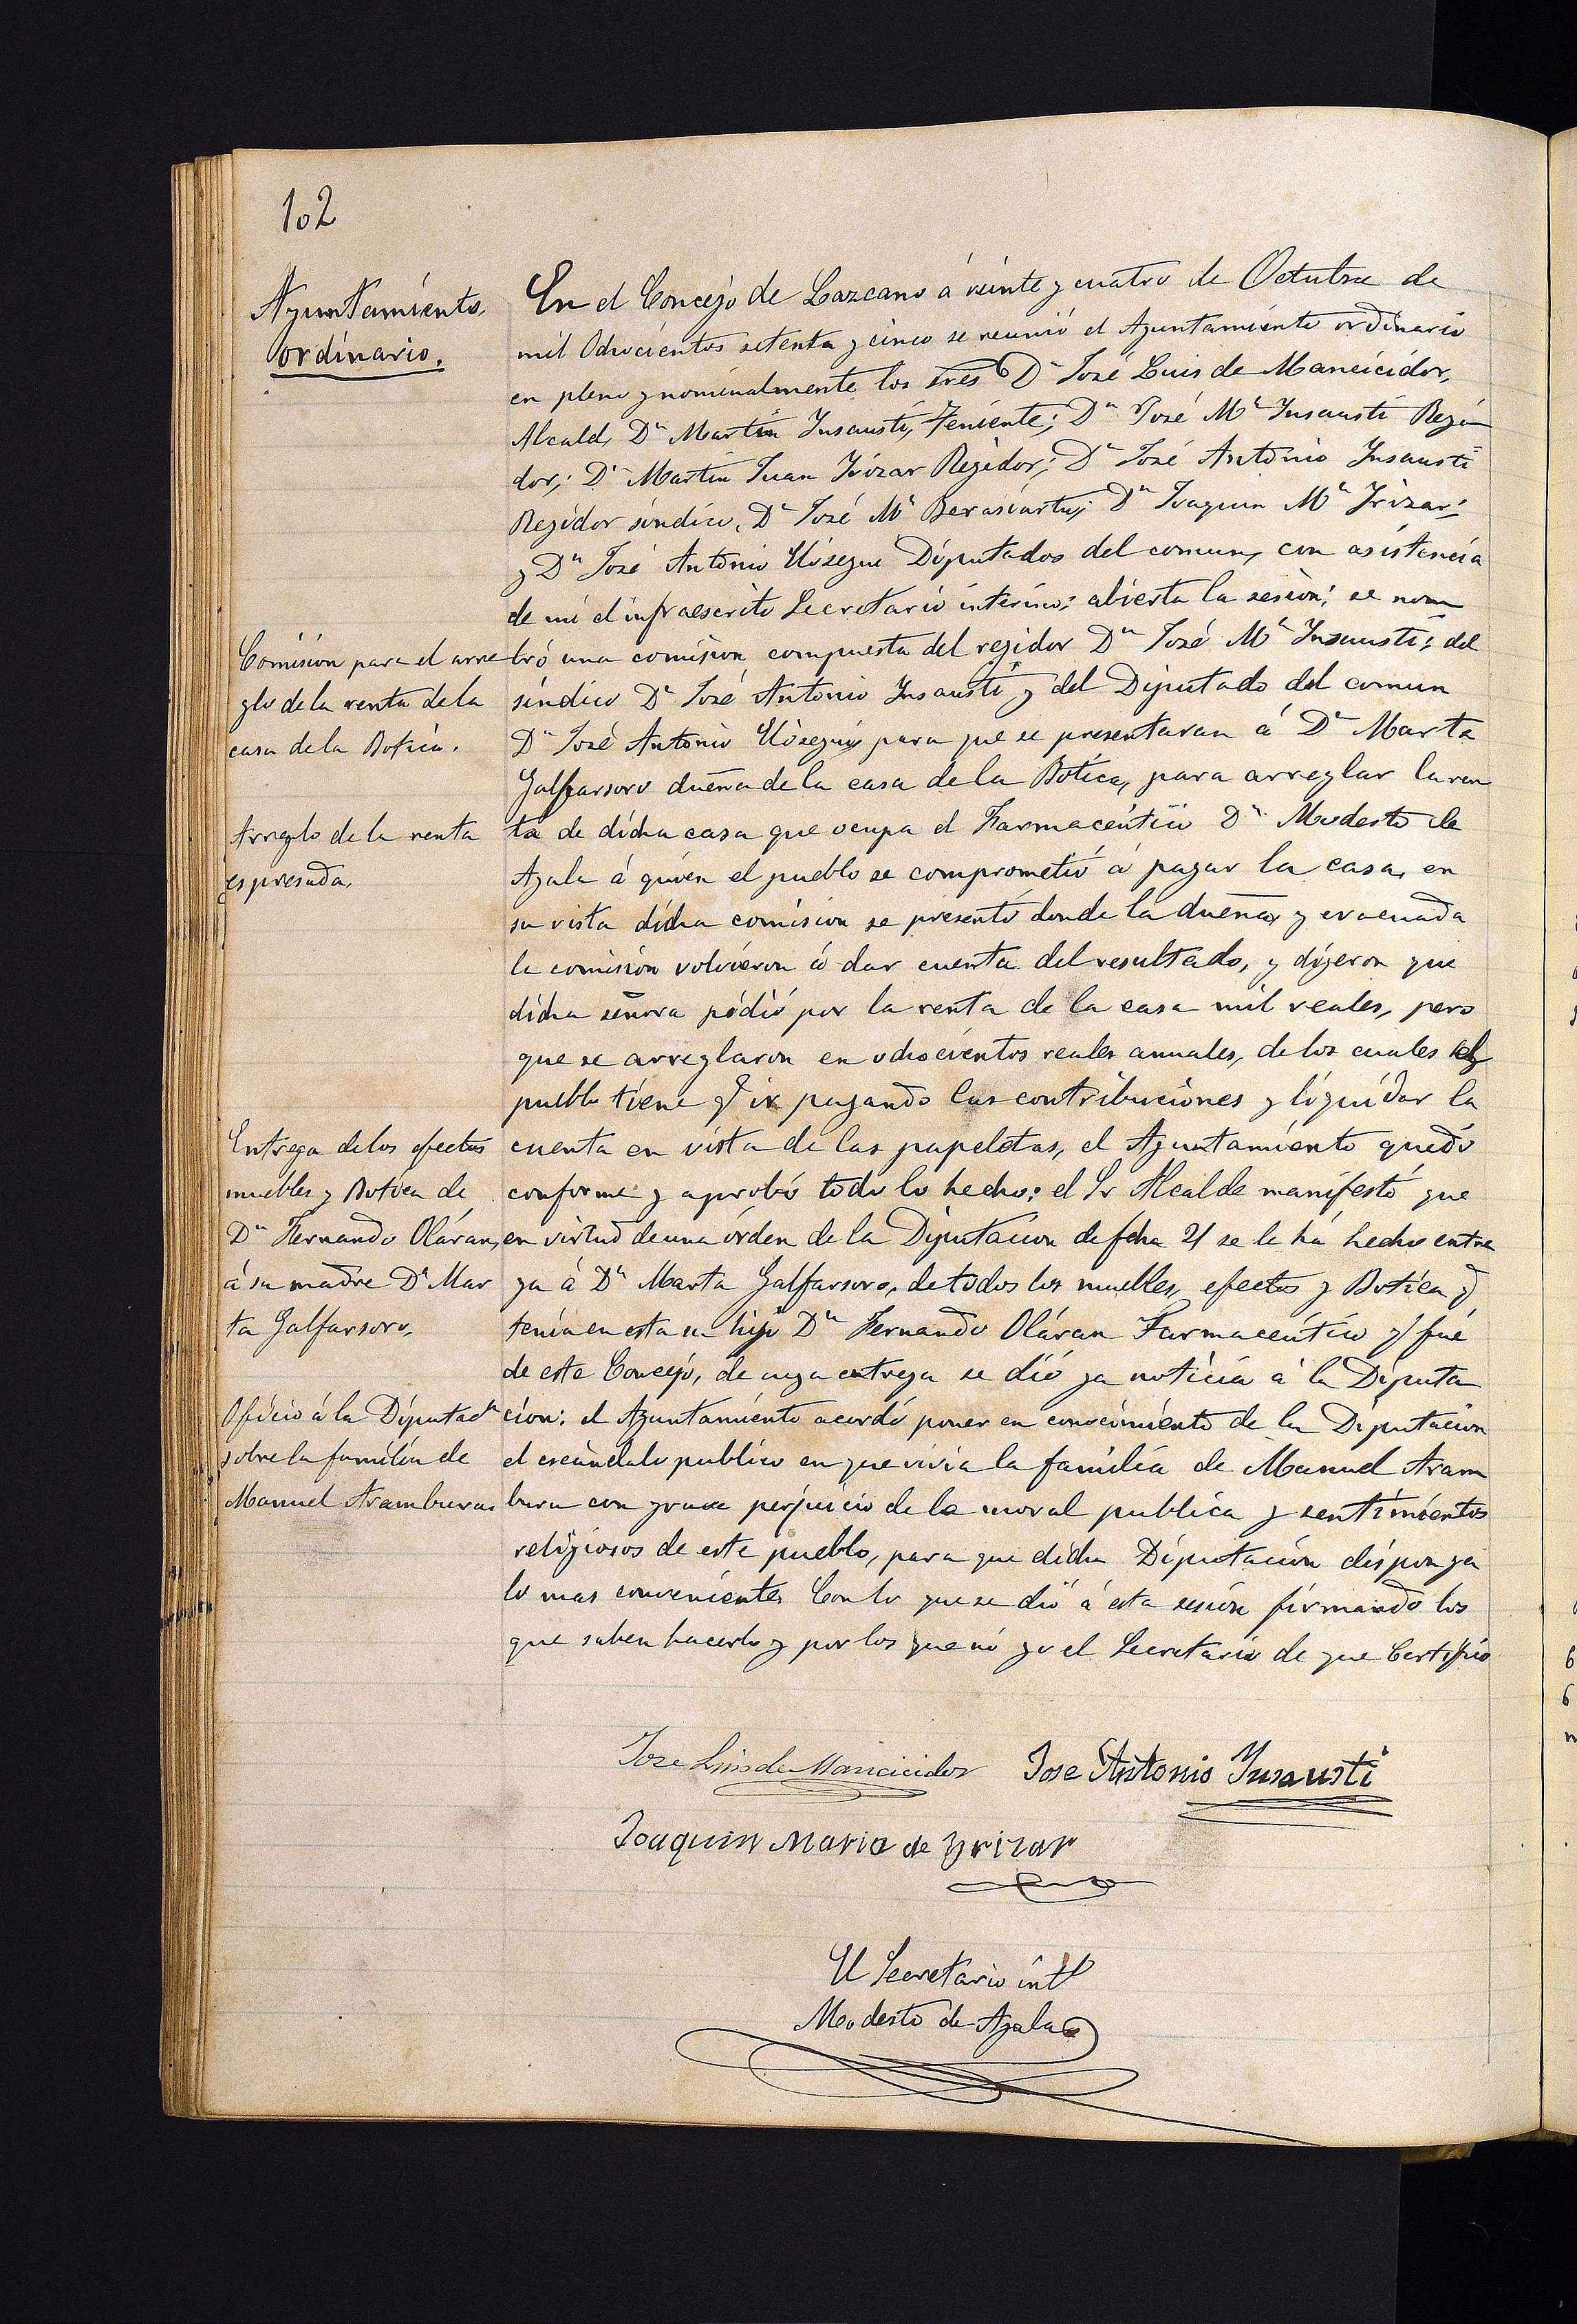 102
Ayuntamiento
ordinario.
En el Concejo de Lazcano á veinte y cuatro de Octubre de
mil Ochocientos setenta y cinco se reunió el Ayuntamiento ordinario
en pleno y nominalmente los Sres Dn José Luis de Mancicidor,
Alcald, Dn Martin Insausti, Teniente; Dn José Ma Insausti Regi
dor; Dn Martin Juan Irizar Regidor; Dn José Antonio Insausti
Regidor síndico, Dn José Ma Berasiartu; Dn Joaquin Ma Irizar;
y Dn José Antonio Urseguı Diputados del comun, con asistencia
de mi el infraescrito Secretario interino; abierta la sesion; se nom
Comision para el arre
glo de la renta de la
casa de la Botica.
bró una comision compuesta del regidor Dn José Ma Insausti; del
síndico Dn José Antonio Insausti y del Diputado del comun
Dn José Antonio para que se presentaran á Da Marta
Galfarsoro dueña de la casa de la Botica, para arreglar la ren
Arreglo de la renta
espresada.
ta de dicha casa que ocupa el Farmacéutico Dn Modesto de
Ayala á quien el pueblo se comprometió á pagar la casa, en
su vista dicha comision se presentó donde la dueña, y evacuada
la comision volvieron á dar cuenta del resultado, y digeron que
dicha señora pidió por la renta de la casa mil reales, pero
que se arreglaron en ochocientos reales anuales, de los cuales el
pueblo tiene q ir pagando las contribuciones y liquidar la
Entrega de los efectos
muebles y Botica de
Dn Fernando Oláran,
á su madre Da Mar
ta Galfarsoro.
cuenta en vista de las papeletas, el Ayuntamiento quedó
conforme y aprobó todo lo hecho; el Sr Alcalde manifestó que
en virtud de una órden de la Diputacion de fcha 21 se le há hecho entre
ga á Da Marta Galfarsoro, de todos los muebles, efectos y Botica q
tenia en esta su hijo Dn Fernando Oláran Farmacéutico q fué
de este Concejo, de cuya entrega se dió ya noticia á la Diputa
Oficio á la Diputacn
sobre la familia de
Manuel Aramburu
cion: el Ayuntamiento acordó poner en conocimiento de la Diputacion
el escándalo publico en que vivia la familia de Manuel Aram
buru con grave perjuicio de la moral publica y sentimientos
religiosos de este pueblo, para que dicha Diputacion disponga
lo mas conveniente, Con lo que se dió á esta sesion firmando los
que saben hacerlo y por los que nó yo el Secretario de que Certifico
Jose Luis de Mancicidor Jose Antonio Insausti
Joaquin Maria de Yrizar
El Secretario int
Modesto de Ayala